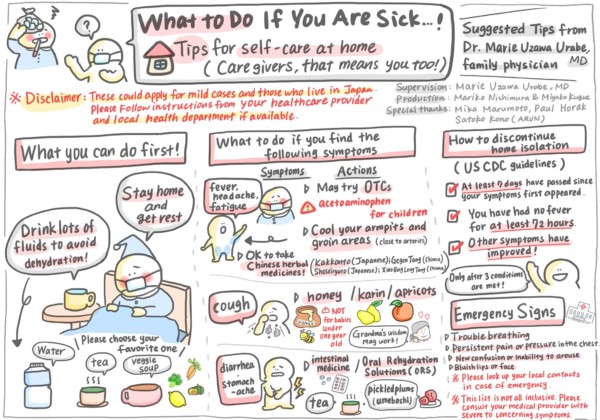 What to Do If You Are Sick...!
Tips for self-care at home
(Caregivers, that means you too!)
Suggested Tips from
Dr. Marie Uzawa Urabe,
family physician MD
※ Disclaimer: These could apply for mild cases and those who live in Japan.
Please follow instructions from your healthcare provider
and local health department if available.
Supervision: Marie Uzawa Urobe, MD
Production: Mariko Nishimura & Miyako
Special thanks: Mika Marumoto, Paul Horak
Satoko Kono (ARUN)
What you can do first!
Stay home
and get rest
Drink lots of
fluids to avoid
dehydration!
Please choose your
favorite one
Water
tea
veggie
soup
What to do if you find the
following symptoms
Symptoms Actions
fever,
headache,
fatigue
May try OTCs
acetoaminophen
for children
Cool your armpits and
groin areas (close to arteries)
OK to take
Chinese herbal
medicines!
Kakkonto (Japanese); GegenTang (China)
Shoseiryuto (Japanese); XiaoQingLongTang (China)
cough
honey / karin / apricots
NOT
for babies
under one
year old
Grandma's wisdom
may work!
diarrhea
stomach
-ache
intestinal
medicine
/ Oral Rehydration
Solutions (ORS)
tea
pickled plums
(umeboshi)
How to discontinue
home isolation
(US CDC guidelines)
At least 7 days have passed since
your symptoms first appeared.
You have had no fever
for at least 72 hours.
Other symptoms have
improved!
Only after 3 conditions
are met!
Emergency Signs
Trouble breathing
Persistent pain or pressure in the chest
New confusion or inability to arouse
Bluish lips or face
※ Please look up your local contacts
in case of emergency.
※ This list is not all inclusive. Please
consult your medical provider with
severe to concerning symptoms.